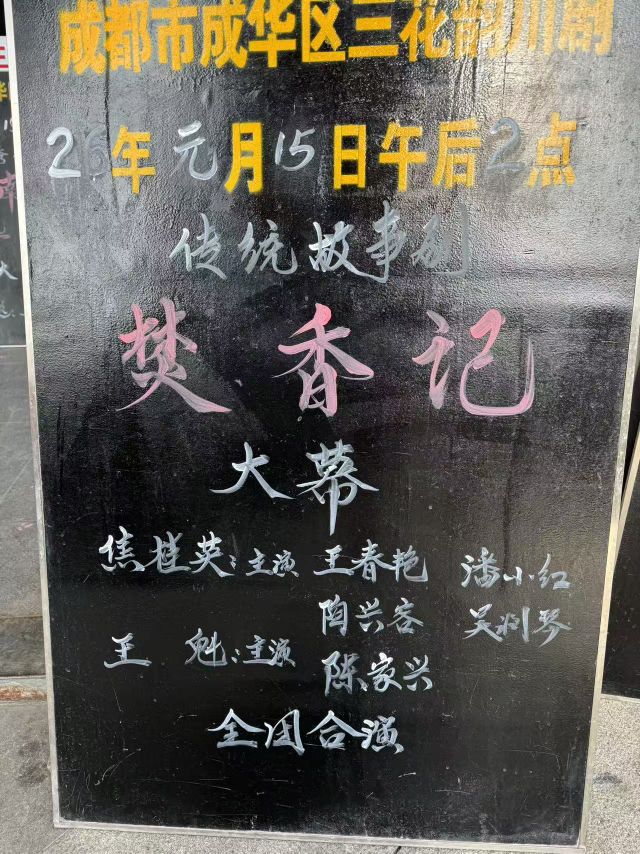 成都市成华区三花韵川剧
26年元月15日午后2点
传统故事剧
焚香记
大幕
焦桂英:主演 王春艳 潘小红
陶兴客 吴刘琴
王魁:主演 陈家兴
全团合演